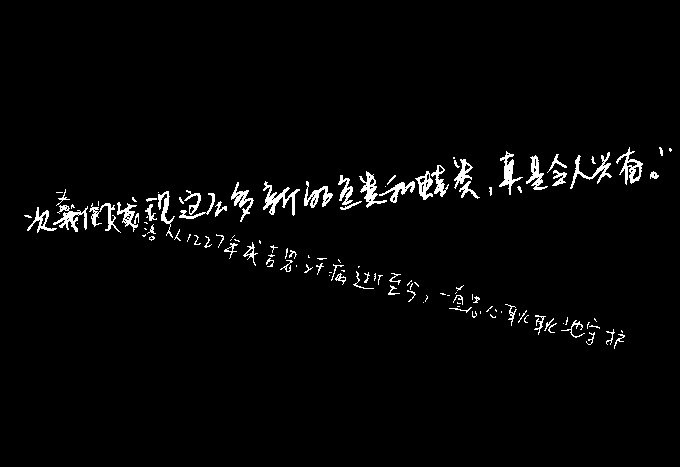 次我们发现这么多新的鱼类和蛙类，真是令人兴奋。”
浴从1227年成吉思汗病逝至今，一直忠心耿耿地守护